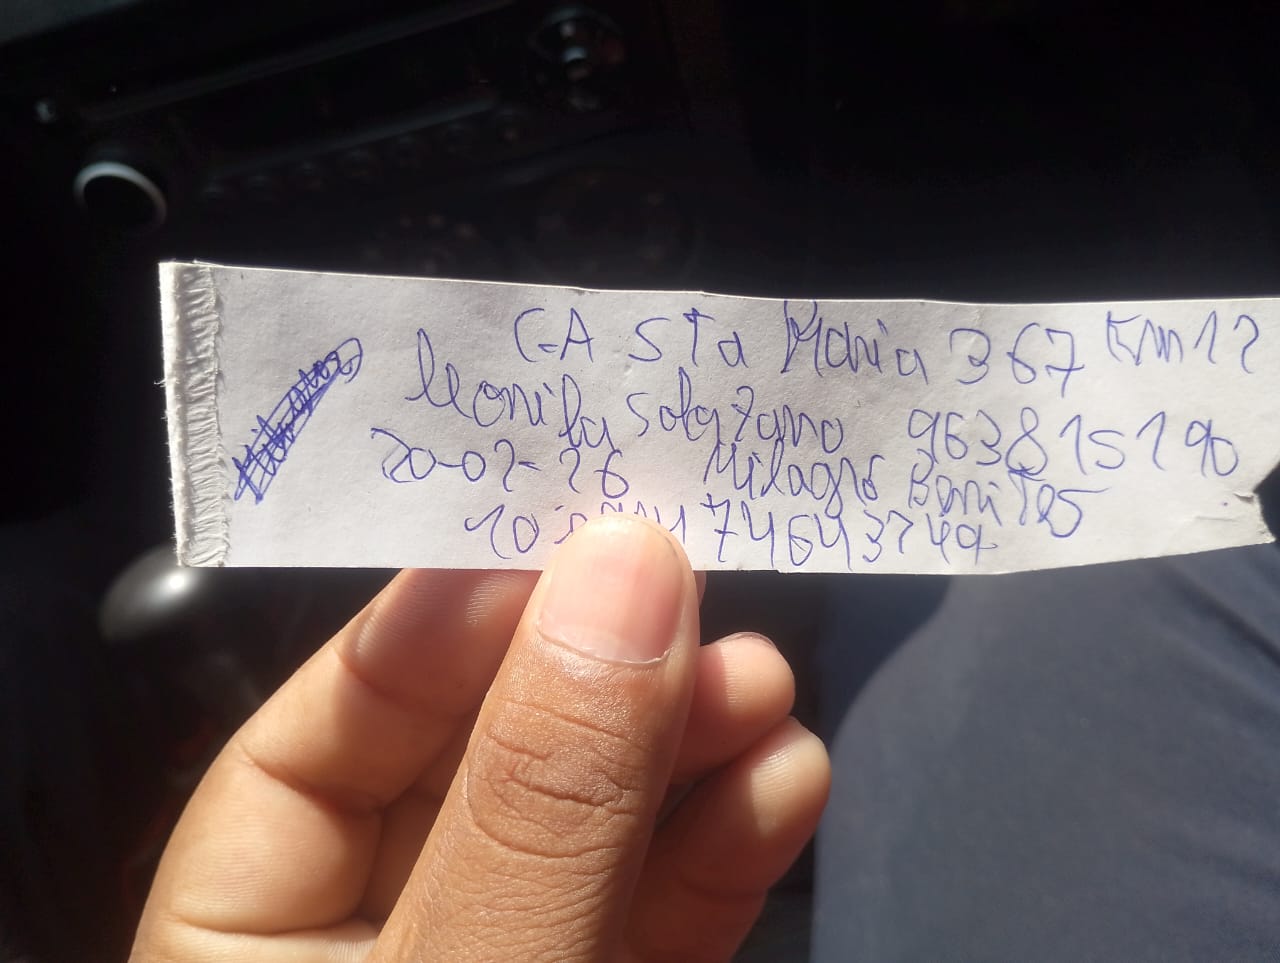 C-A STa Maria 367 Km 12
leonila Solorzano 963815190
20-02-26 Milagro BeniTes
10: 74643749